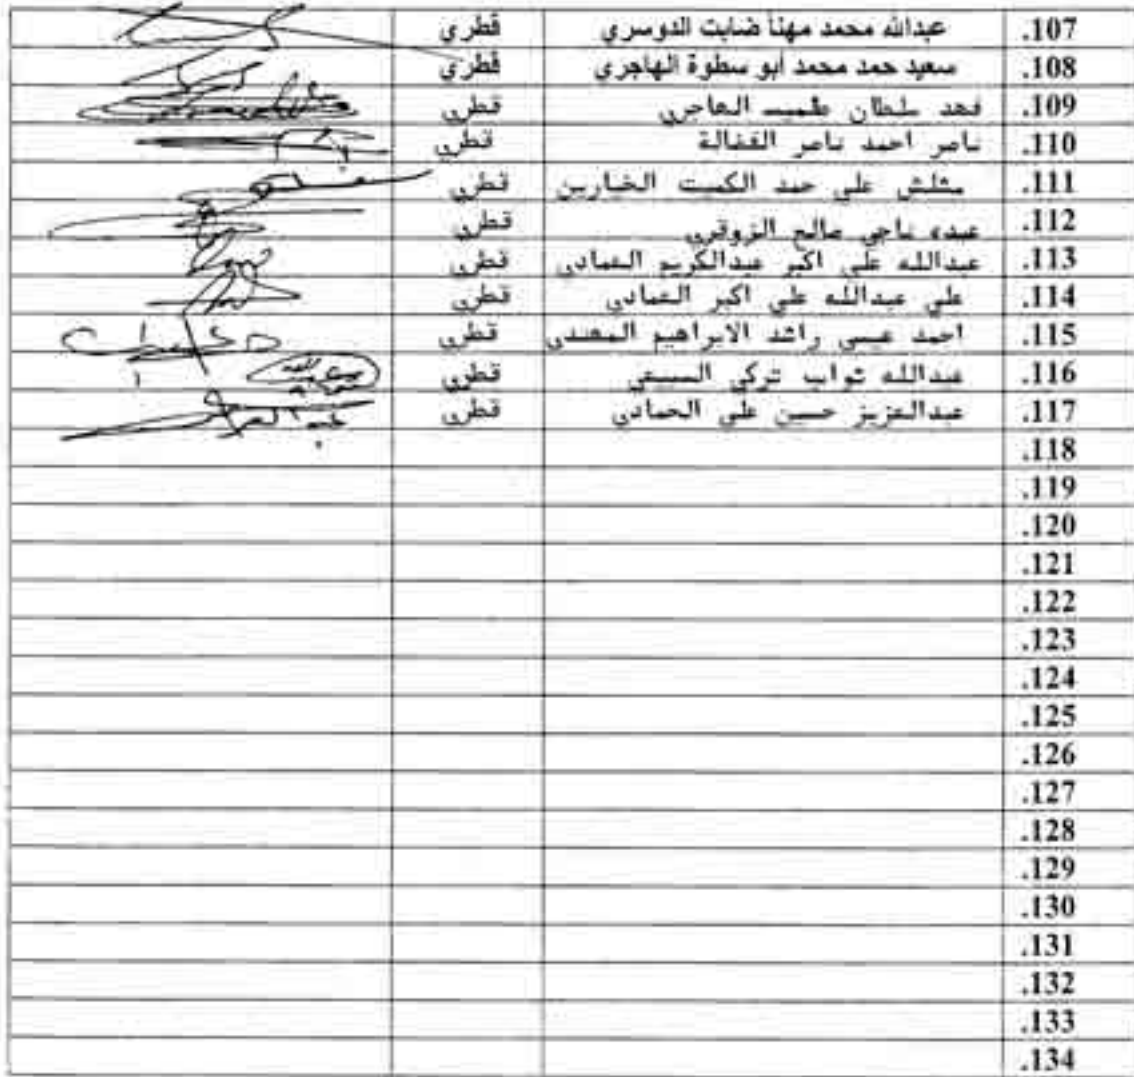 107. عبدالله محمد مهنأ ضابت الدوسري قطري
108. سعيد حمد محمد أبو سطوة الهاجري قطري
109. فهد سلطان طميس الهاجري قطري
110. ناصر احمد ناصر الفضالة قطري
111. مشلش علي حمد الكميت الخيارين قطري
112. عبده ناجي صالح الزوقري قطري
113. عبدالله علي اكبر عبدالكريم العمادي قطري
114. علي عبدالله علي اكبر العمادي قطري
115. احمد عيسى راشد الابراهيم المهندي قطري
116. عبدالله ثواب تركي السبيعي قطري
117. عبدالعزيز حسين علي الحمادي قطري
118.
119.
120.
121.
122.
123.
124.
125.
126.
127.
128.
129.
130.
131.
132.
133.
134.